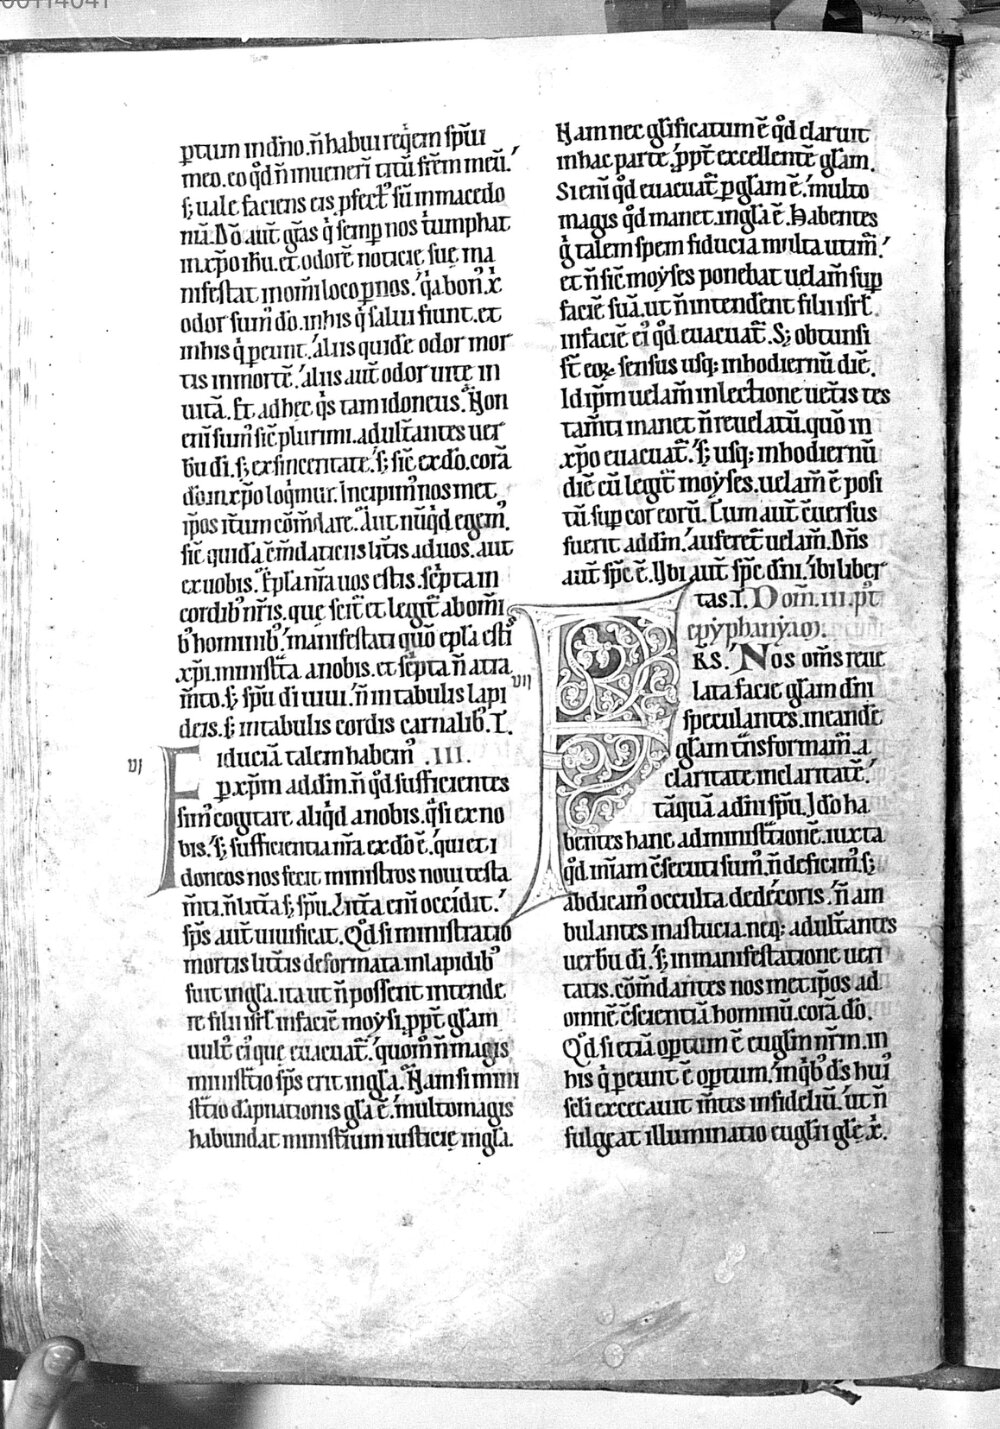 00114041
ptum in dn̄o. n̄ habui reqͥem spū
meo. eo qͦd n̄ inuenerī titū frēm meū.
sꝫ uale faciens eis. pfectꝰ sū in macedo
niā. Dō aut̄ grās qͥ semp nos tͥumphat
in xp̄o ihu. et odorē noticię suę ma
nifestat in om̄i loco p nos. qͥa bonꝰ x̄
odor sumꝰ dō. in his qͥ salui fiunt. et
in his qͥ peunt. aliis quidē odor mor
tis in mortē. aliis aut̄ odor uitę in
uitā. Et ad hec qͥs tam idoneus. Non
enī sumꝰ sic̄ plurimi. adult̄antes uer
bu di. sꝫ ex sinceritate. sꝫ sic̄ ex dō. corā
dō in xp̄o loqͥmur. Incipimꝰ nos met
ip̄os it̄um cōm̄dare. Aut nūqͥd egemꝰ.
sic̄ quidā cōm̄daticiis lit̄is ad uos. aut
ex nobis. Epl̄a nr̄a uos estis. sc̄pta in
cordibꝰ nr̄is. quę scit̄ et legit̄ ab om̄i
bꝰ hominibꝰ. manifestati quō epl̄a esti
xp̄i. ministͣta a nobis. et sc̄pta n̄ atra
m̄to. sꝫ spū di uiui. n̄ in tabulis lapi
deis. sꝫ in tabulis cordis carnalibꝰ. T.
VI
Fiduciā talem habemꝰ .III.
p xp̄m ad dm̄. n̄ qͦd sufficientes
simꝰ cogitare aliqͥd a nobis. qͣsi ex no
bis. sꝫ sufficientia nr̄a ex dō ē. qͥ et i
doneos nos fecit ministros noui testa
m̄ti. n̄ lit̄a sꝫ spū. Lit̄a enī occidit.
sp̄s aut̄ uiuificat. Qͦd si ministratio
mortis lit̄is deformata in lapidibꝰ
fuit in gl̄a. ita ut n̄ possent intende
re filii isrl̄ in faciē moẏsi. ppt̄ gl̄am
uultꝰ eiꝰ que euacuat̄. quom̄ n̄ magis
ministͣtio sp̄s erit in gl̄a. Nam si mini
stͣtio dāpnationis gl̄a ē. multo magis
habundat ministīum iusticię in gl̄a.
Nam nec gl̄ificatum ē qͦd claruit
in hac parte. ppt̄ excellentē gl̄am.
Si enī qͦd euacuat̄ p gl̄am ē. multo
magis qͦd manet in gl̄a ē. Habentes
gͥ talem spem fiducia multa utimꝰ.
et n̄ sic̄ moẏses ponebat uelam̄ sup
faciē suā. ut n̄ intendēnt filii isrl̄
in faciē eiꝰ qͦd euacuat̄. Sꝫ obtunsi
st̄ eoꝝ sensus usqꝫ in hodiernū diē.
Id ip̄m uelam̄ in lectione uet̄is tes
tam̄ti manet n̄ reuelatū. quō in
xp̄o euacuat̄. sꝫ usqꝫ in hodiernū
diē cū legit̄ moẏses. uelam̄ ē posi
tū sup cor eorū. Cum aut̄ cōuersus
fuerit ad dm̄. auferet̄ uelam̄. Dn̄s
aut̄ sp̄c ē. Ubi aut̄ sp̄c dn̄i. ibi liber
tas. T. Dom̄. III. pͭ
epẏphanẏam.
VII
RS. Nos om̄s reue
lata facie gl̄am dn̄i
speculantes. in eandē
gl̄am tͣnsformam̄. a
claritate in claritatē.
tāquā a dn̄i spū. Ido ha
bentes hanc administͣtionē. iuxta
qͦd m̄iam cōsecuti sumꝰ. n̄ deficimꝰ. sꝫ
abdicamꝰ occulta dedecoris. n̄ am
bulantes in astucia. neqꝫ adult̄antes
uerbū di. sꝫ in manifestatione ueri
tatis. cōm̄dantes nos met ip̄os ad
omnē cōscientiā hominū. corā dō.
Qͦd si etiā optum ē euglīm nr̄m. in
his qͥ peunt ē optum. in qͥbꝰ ds̄ huiꝰ
seli excecauit m̄tes infideliū. ut n̄
fulgeat illuminatio euglīi gl̄e x̄.